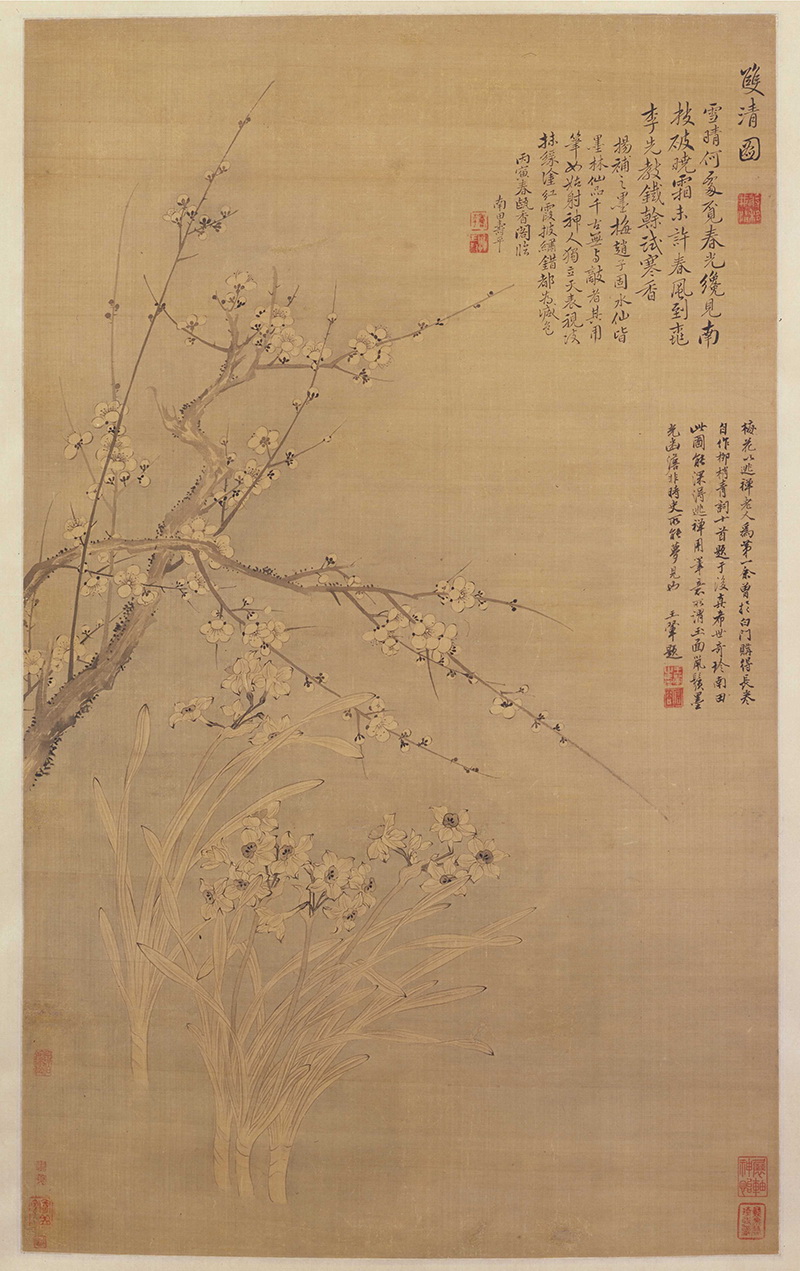 雙清圖
雪晴何處覓春光纔見南
枝破曉霜未許春風到桃
李先教鐵榦試寒香
揚補之墨梅趙子固水仙皆
墨林仙品千古無與敵者其用
筆如姑射神人獨立天表視
抹綠塗紅霞披錯都為減色
丙寅春甌香閣臨
南田壽平
梅花以逃禪老人為第一余曾於白門購得長卷
自作柳梢青詞十首題于後真希世奇珍南田
此圖能深得逃禪用筆意玉面鼠鬚墨
光幽澹非時史所能夢見也 王翬題